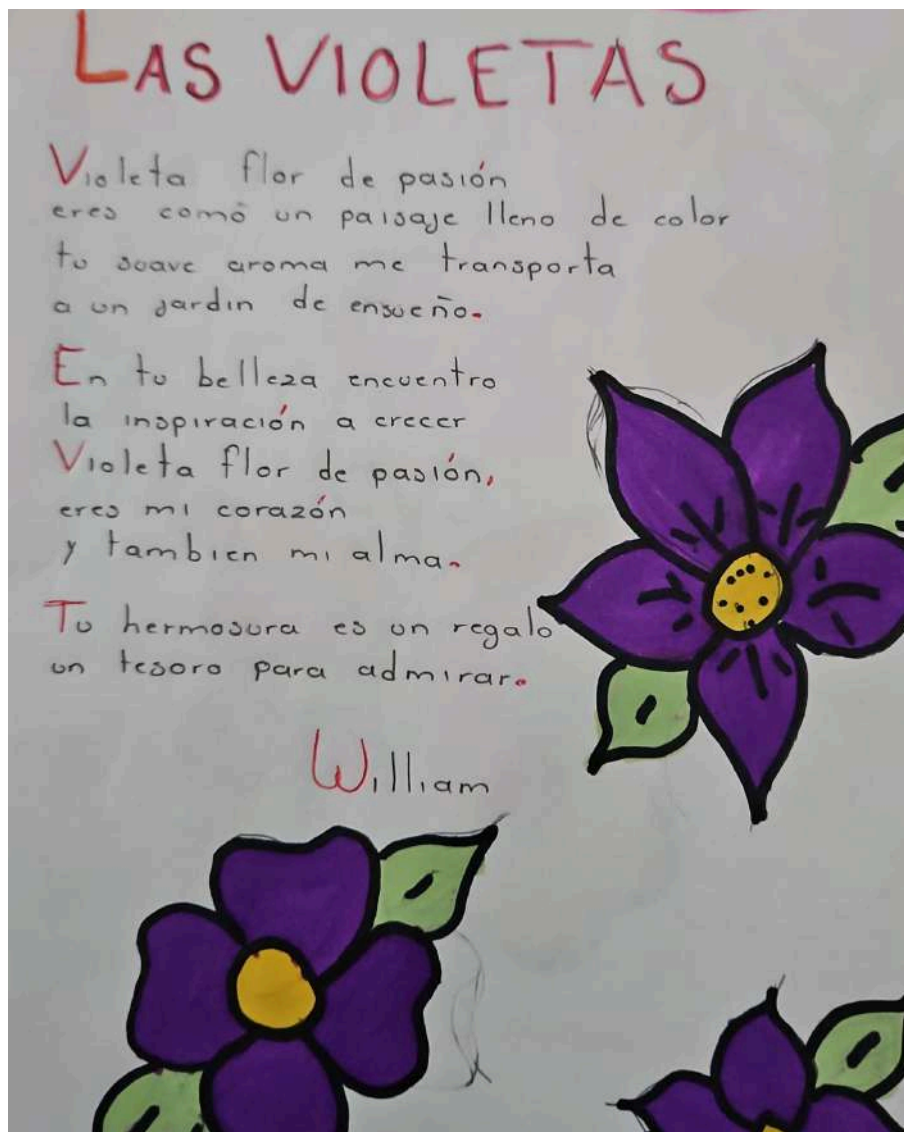 LAS VIOLETAS
Violeta flor de pasión
eres como un paisaje lleno de color
tu suave aroma me transporta
a un jardin de ensueño.
En tu belleza encuentro
la inspiración a crecer
Violeta flor de pasión,
eres mi corazón
y tambien mi alma.
Tu hermosura es un regalo
un tesoro para admirar.
William